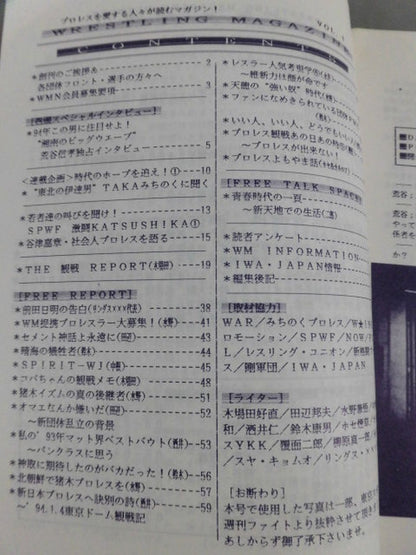 プロレスを愛する人々が読むマガジン!
WRESTLING MAGAZINE
VOL.
CONTENTS
*創刊のご挨拶&------2
各団体フロント・選手の方々へ
*WMN会員募集要項------3
[巻頭スペシャルインタビュー]
*94年この男に注目せよ!
"湘南のビッグウエーブ"
荒谷信孝独占インタビュー------5
<連載企画>時代のホープを追え!①---10
*"東北の伊達男"TAKAみちのくに聞く
*若者達の叫びを聞け!------13
SPWF 激闘KATSUSHIKA①
*谷津嘉章・社会人プロレスを語る---15
*THE 観戦 REPORT------19
[FREE REPORT]
*前田日明の告白------38
*WM提携プロレスラー大募集!---41
*セメント神話よ永遠に---42
*晴海の犠牲者------44
*SPIRIT-WJ------45
*コバちゃんの観戦メモ------48
*猪木イズムの真の後継者------51
*オマエなんか嫌いだ------52
〜新団体乱立の背景
*私の'93年マット界ベストバウト---53
〜パンクラスに思う
*神取に期待したのがバカだった!---56
*北朝鮮で猪木プロレスを------57
*新日本プロレスへ訣別の詩------59
〜'94.1.4東京ドーム観戦記
*レスラー人気考現学⑥
〜維新力は態が命です
*天龍の"強い奴"時代
*ファンになめきされている団体
*いい人、いい人、どうでもいい
*プロレス観戦あの日あの時の
〜プロレスが出来ない!
*プロレスよもやま話
[FREE TALK SPACE]
*青春時代の一頁------
〜新天地での生活
*読者アンケート------
*WM INFORMATION
*IWA・JAPAN情報------
*編集後記------
[取材協力]
WAR/みちのくプロレス/W★IN
ロモーション/SPWF/NOW/P
L/レスリング・ユニオン/
ス/剛軍団/IWA・JAPAN
[ライター]
木場田好直/田辺邦夫/水野
和/酒井仁/鈴木康男/
スYKK/覆面二郎/柳原真一
/スヤ・キョムオ/リングス・×××
[お断わり]
本号で使用した写真は一部、東京
週刊ファイトより抜粋させて頂き
あしからず御了承下さいませ。
荒谷: